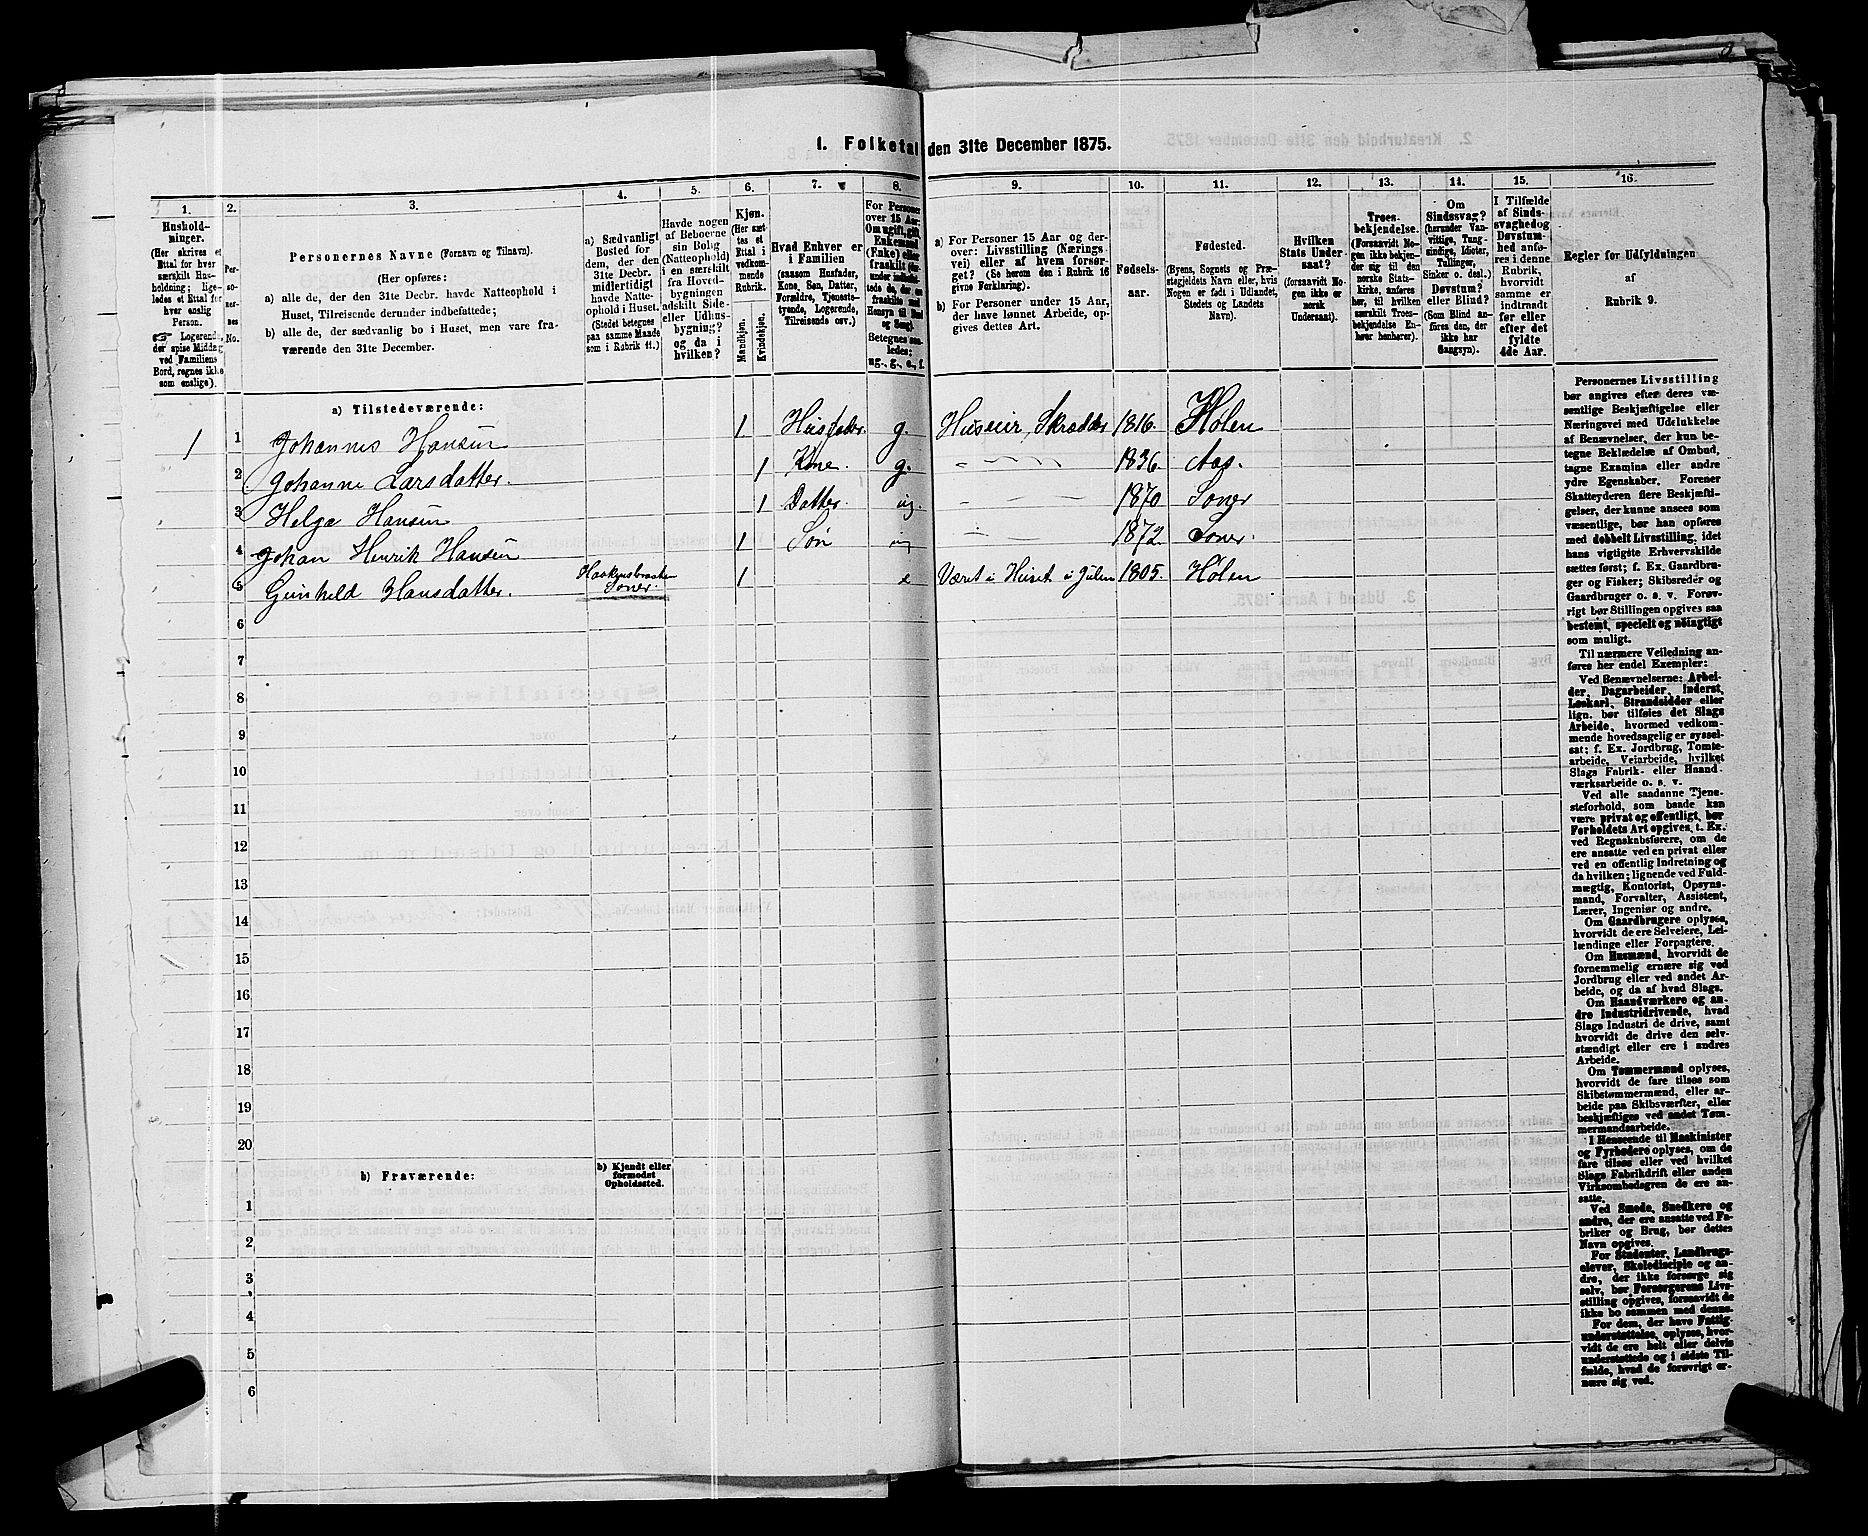 1. Folketal den 31te December 1875.
1.
2.
3.
4.
5.
6.
7.
8.
9.
10.
11.
12.
13.
14.
15.
16.
Hushold-
ninger.
(Her skrives et
Ettal for hver
særskilt Hus-
holdning; lige-
ledes et Ettal for
hver enslig
Person.
☞ Logerende,
der spise Middag
ved Familiens
Bord, regnes ikke
som enslige).
Per-
so-
ner-
nes
No.
Personernes Navne (Fornavn og Tilnavn).
(Her opføres:
a) alle de, der den 31te Decbr. havde Natteophold i
Huset, Tilreisende derunder indbefattede;
b) alle de, der sædvanlig bo i Huset, men vare fra-
værende den 31te December.
a) Sædvanligt
Bosted for
dem, der den
31te Decbr.
midlertidigt
havde Natte-
ophold i Huset.
(Stedet betegnes
paa samme Maade
som i Rubrik 11.)
Havde nogen
af Beboerne
sin Bolig
(Natteophold)
i en særskilt
fra Hoved-
bygningen
adskilt Side-
eller Udhus-
bygning?
og da i
hvilken?
Kjøn.
(Her sæt-
tes et
Ettal i
vedkom-
mende
Rubrik.
Mandkjøn.
Kvindekjøn.
Hvad Enhver er
i Familien
(saasom Husfader,
Kone, Søn, Datter,
Forældre, Tjeneste-
tyende, Logerende,
Tilreisende osv.)
For Personer
over 15 Aar:
Om ugift, gift,
Enkemand
(Enke) eller
fraskilt
Betegnes saa-
ledes:
ug., g., e., f.
a) For Personer 15 Aar og der-
over: Livsstilling (Nærings-
vei) eller af hvem forsør-
get? (Se herom den i Rubrik 16
givne Forklaring).
b) For Personer under 15 Aar,
der have lønnet Arbeide, op-
gives dettes Art.
Fødsels-
aar.
Fødested.
(Byens, Sognets og Præ-
stegjeldets Navn eller, hvis
Nogen er født i Udlandet,
Stedets og Landets
Navn).
Hvilken
Stats Under-
saat?
(forsaavidt No-
gen ikke er
norsk
Undersaat).
Troes-
bekjendelse.
(Forsaavidt No-
gen ikke bekjen-
der sig til den
norske Stats-
kirke, anføres
her, til hvilken
særskilt Troes-
bekjendelse En-
hver henhører).
Om
Sindssvag?
(herunder Van-
vittige, Tung-
sindige, Idioter,
Tullinger,
Sinker o. desl.)
Døvstum?
eller Blind?
(Som Blind an-
føres den, der
ikke har
Gangsyn).
I Tilfælde
af Sinds-
svaghed og
Døvstum-
hed anfø-
res i denne
Rubrik,
hvorvidt
samme er
indtraadt
før eller
efter det
fyldte
4de Aar.
Regler for Udfyldningen
af
Rubrik 9.
a) Tilstedeværende:
1 1 Johannes Hansen 1 Husfader. g. Huseier, Skrædder 1816. Hølen
2 Johanne Larsdatter. 1 Kone. g. 1836. Aas.
3 Helga Hansen 1 Datter. ug. 1870 Soner
4 Johan Henrik Hansen 1 Søn ug 1872. Soner.
5 Gunhild Hansdatter. Soner. 1 e Været i Huset i Julen 1805. Hølen
6
7
8
9
10
11
12
13
14
15
16
17
18
19
20
b) Fraværende:
b) Kjendt eller
formodet
Opholdssted.
1
2
3
4
5
6
Personernes Livsstilling
bør angives efter deres væ-
sentlige Beskjæftigelse eller
Næringsvei med Udelukkelse
af Benævnelser, der kun be-
tegne Beklædelse af Ombud,
tagne Examina eller andre
ydre Egenskaber. Forener
Skatteyderen flere Beskjæfti-
gelser, der kunne ansees som
væsentlige, bør han opføres
med dobbelt Livsstilling, idet
hans vigtigste Erhvervskilde
sættes først; f. Ex. Gaardbru-
ger og Fisker; Skibsreder og
Gaardbruger o. s. v. Forøv-
rigt bør Stillingen opgives saa
bestemt, specielt og nøiagtigt
som muligt.
Til nærmere Veiledning an-
føres her endel Exempler:
Ved Benævnelserne: Arbei-
der, Dagarbeider, Inderst,
Løskarl, Strandsidder eller
lign. bør tilføies det Slags
Arbeide, hvormed vedkom-
mende hovedsagelig er syssel-
sat; f. Ex. Jordbrug, Tomte-
arbeide, Veiarbeide, hvilket
Slags Fabrik- eller Haand-
værksarbeide o. s. v.
Ved alle saadanne Tjene-
steforhold, som baade kan
være privat og offentligt, bør
Forholdets Art opgives, t. Ex.
ved Regnskabsførere, om de
ere ansatte ved en privat eller
ved en offentlig Indretning og
da hvilken; lignende ved Fuld-
mægtig, Kontorist, Opsyns-
mand, Forvalter, Assistent,
Lærer, Ingeniør og andre.
Om Gaardbrugere oplyses,
hvorvidt de ere Selveiere, Lei-
lændinge eller Forpagtere.
Om Husmænd, hvorvidt de
fornemmelig ernære sig ved
Jordbrug eller ved andet Ar-
beide, og da af hvad Slags.
Om Haandværkere og an-
dre Industridrivende, hvad
Slags Industri de drive, samt
hvorvidt de drive den selv-
stændigt eller ere i andres
Arbeide.
Om Tømmermænd oplyses,
hvorvidt de fare tilsøs som
Skibstømmermænd, eller ar-
beide paa Skibsværfter, eller
beskjæftiges ved andet Tøm-
mermandsarbeide.
I Henseende til Maskinister
og Fyrbødere oplyses, om de
fare tilsøs eller ved hvilket
Slags Fabrikdrift eller anden
Virksomhedsgren de ere an-
satte.
Ved Smede, Snedkere og
andre, der ere ansatte ved Fa-
briker og Brug, bør dettes
Navn opgives.
For Studenter, Landbrugs-
elever, Skoledisciple og an-
dre, der ikke forsørge sig
selv, bør Forsørgerens Livs-
stilling opgives, forsaavidt de
ikke bo sammen med denne.
For dem, der have Fattig-
understøttelse, oplyses, hvor-
vidt de ere helt eller delvis
understøttede og i sidste Til-
fælde, hvad de forøvrigt er-
nære sig ved.